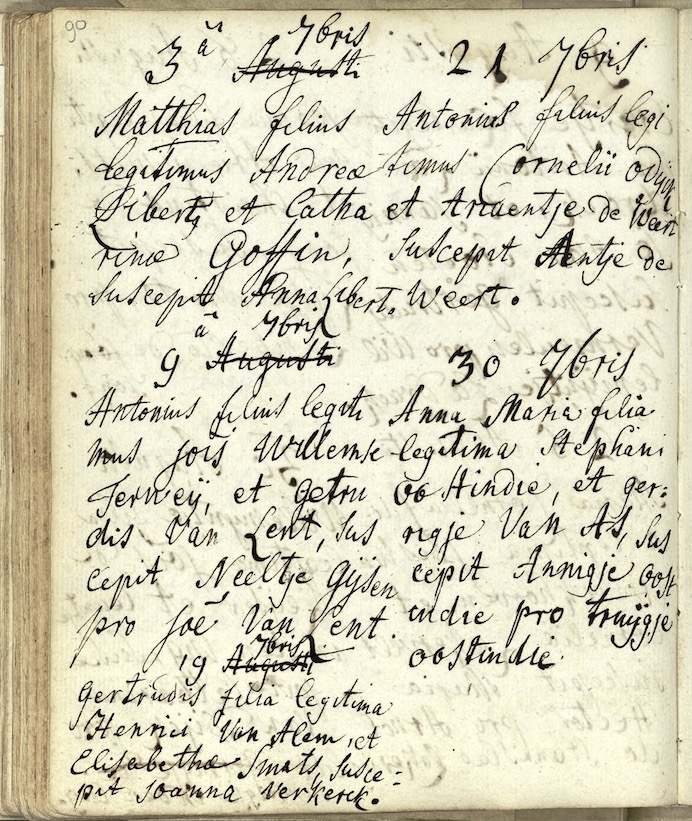 90
3ª 7bris
Augusti
Matthias filius
legitimus Andreæ
Liberti et Catha
rinæ Goffin,
suscepit Anna Libert.
a 7bris
9 Augusti
Antonius filius legiti
mus jois Willemse
Terweij, et getru
dis Van Lent, sus
cepit Neeltje Gijsen
pro joe Van Lent
7bris
19 Augusti
gertrudis filia legitima
Henrici Van Alem, et
Elisabethæ Smits, susce=
pit joanna Verkerck.
21 7bris
Antonius filius legi
timus Cornelii odijk
et Ariaentje de Weert
suscepit Aentje de
Weert.
30 7bris
Anna Maria filia
legitima Stephani
oostindie, et ger=
rigje Van As, sus
cepit Annigje oost
indie pro truijgje
oostindie